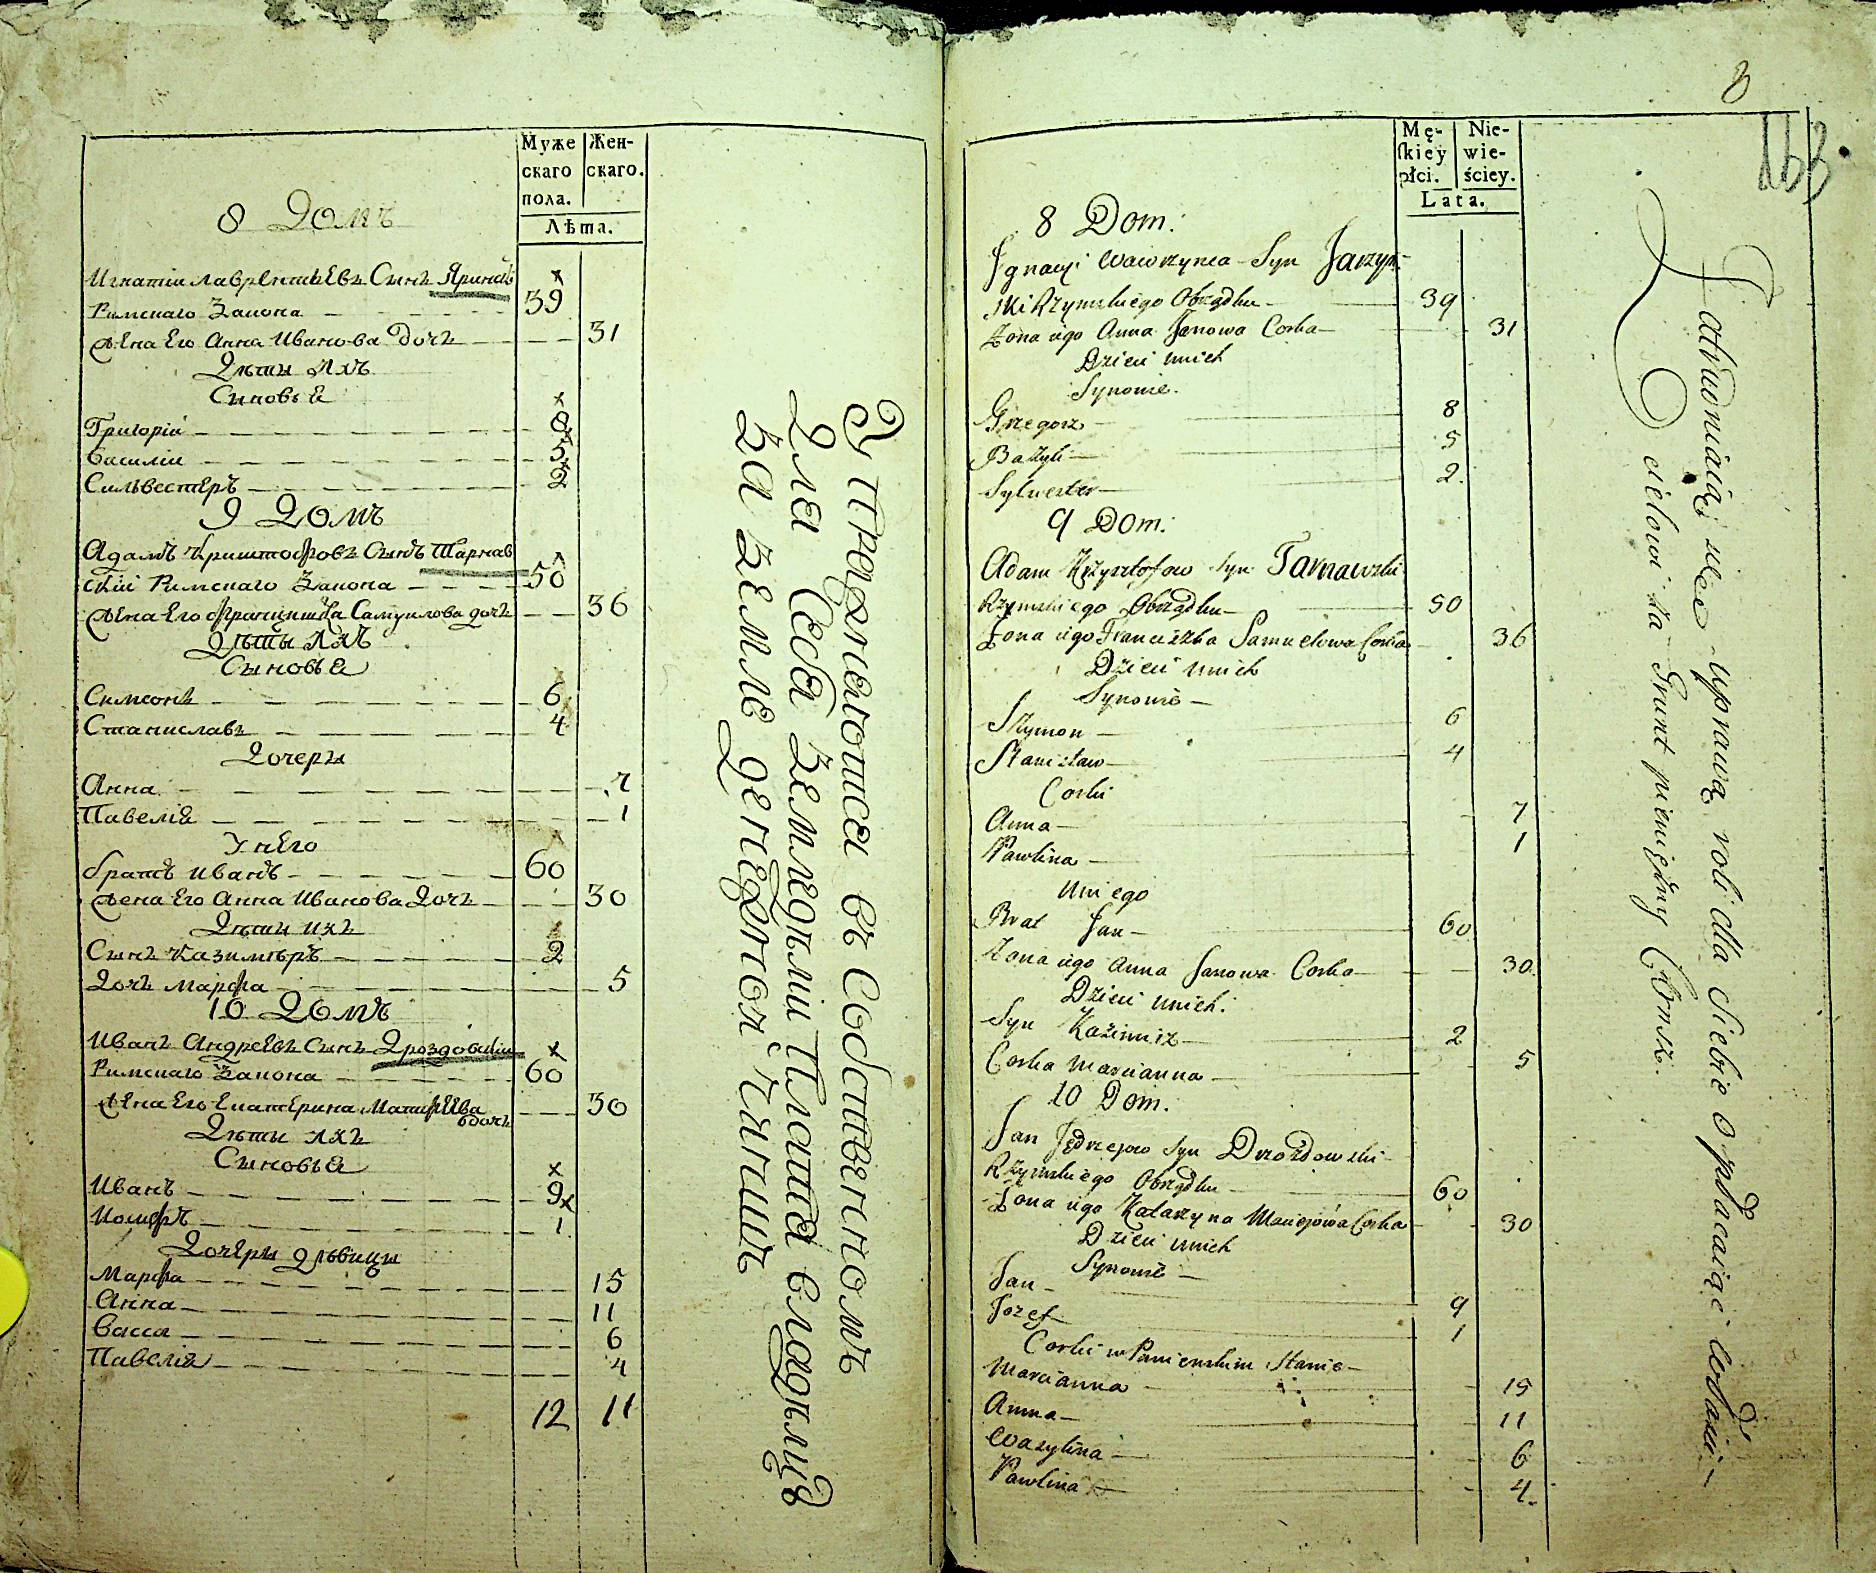 Муже
скаго
пола.
Жен-
скаго.
Лѣта.
8 Домъ
Игнатіи Лаврентьевъ Сынъ Яринскі
Римскаго Закона 39
Жена Его Анна Иванова Дочь 31
Дѣти Ихъ
Сыновья
Григоріи 8
Василіи 5
Сильвестеръ 2
9 Домъ
Адамъ Криштофовъ Сынъ Тарнав
скіи Римскаго Закона 50
Жена Его Францишка Самуилова дочь 36
Дѣты Ихъ
Сыновья
Симеонъ 6
Станиславъ 4
Дочеры
Анна 7
Павелія 1
У него
братъ Иванъ 60
Жена Его Анна Иванова Дочь 30
Дѣти ихъ
Сынъ Казимѣръ 2
Дочь Марфа 5
10 Домъ
Иванъ Андреевъ Сынъ Дроздовскіи
Римскаго Закона 60
Жена Его Екатерина Матифеева дочь 30
Дѣты Ихъ
Сыновья
Иванъ 9
Иосифъ 1
Дочеры Дѣвицы
Марфа 15
Анна 11
Васса 6
Павелія 4
12 11
Упражнеютса въ Собственномъ
Для Себя Земледѣліи Платя владѣлцу
За Землю денежной чиншъ
8
163
Mę-
skiey
płci.
Nie-
wie-
ściey.
Lata.
8 Dom:
Jgnacyi Wawrzynca Syn Jarzyn-
ski Rzymskiego Obrządku 39
Żona iego Anna Janowa Corka 31
Dzieci unich
Synowie.
Grzegorz 8
Bazyli 5
Sylwester 2.
9 Dom:
Adam Krzysztofow Syn Tarnawski
Rzymskiego Obrządku 50
Żona iego Franciszka Samuelowa Corka 36
Dzieci unich
Synowie
Szymon 6
Stanisław 4
Corki
Anna 7
Pawlina 1
Uniego
Brat Jan 60
Żona iego Anna Janowa Corka 30.
Dzieci unich:
Syn Kaźimirz 2
Corka Marcianna 5
10 Dom:
Jan Jędrzejow Syn Drozdowski
Rzymskiego Obrządku 60
Żona iego Katarzyna Maciejowa Corka 30
Dzieci unich
Synowie
Jan 9
Jozef 1
Corki w Panienskim Stanie
Marcianna 15
Anna 11
Wasylina 6
Pawlina 4.
Zatrudniaią się uprawą roli dla Siebie opłacaiąc właści-
cielowi za Grunt pieniężny Czynsz.